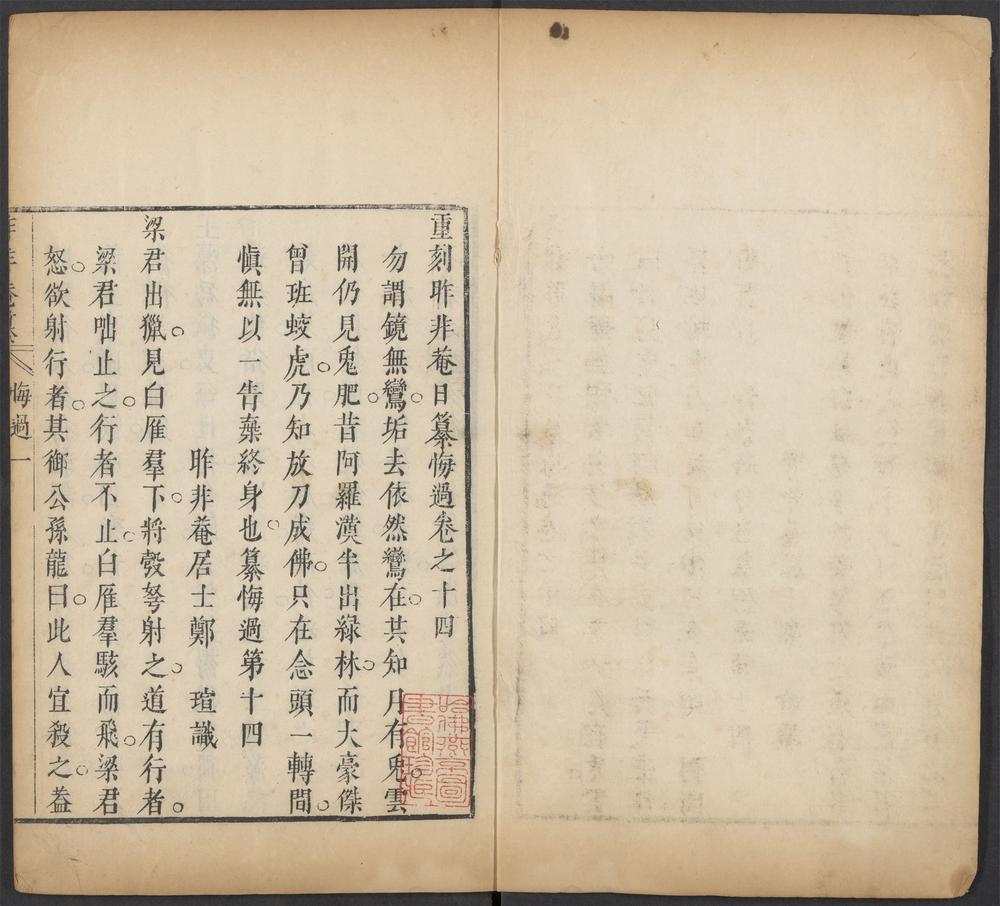 重刻昨非菴日纂悔過卷之十四
勿謂鏡無鸞垢去依然鸞在其知月有兔雲
開仍見兔肥昔阿羅漢半出綠林而大豪傑
曾班蛟虎乃知放刀成佛只在念頭一轉間
愼無以一眚棄終身也纂悔過第十四
昨非菴居士鄭瑄識
梁君出獵見白雁羣下將彀弩射之道有行者
梁君咄止之行者不止白雁羣駭而飛梁君
怒欲射行者其御公孫龍曰此人宜殺之益
悔過一